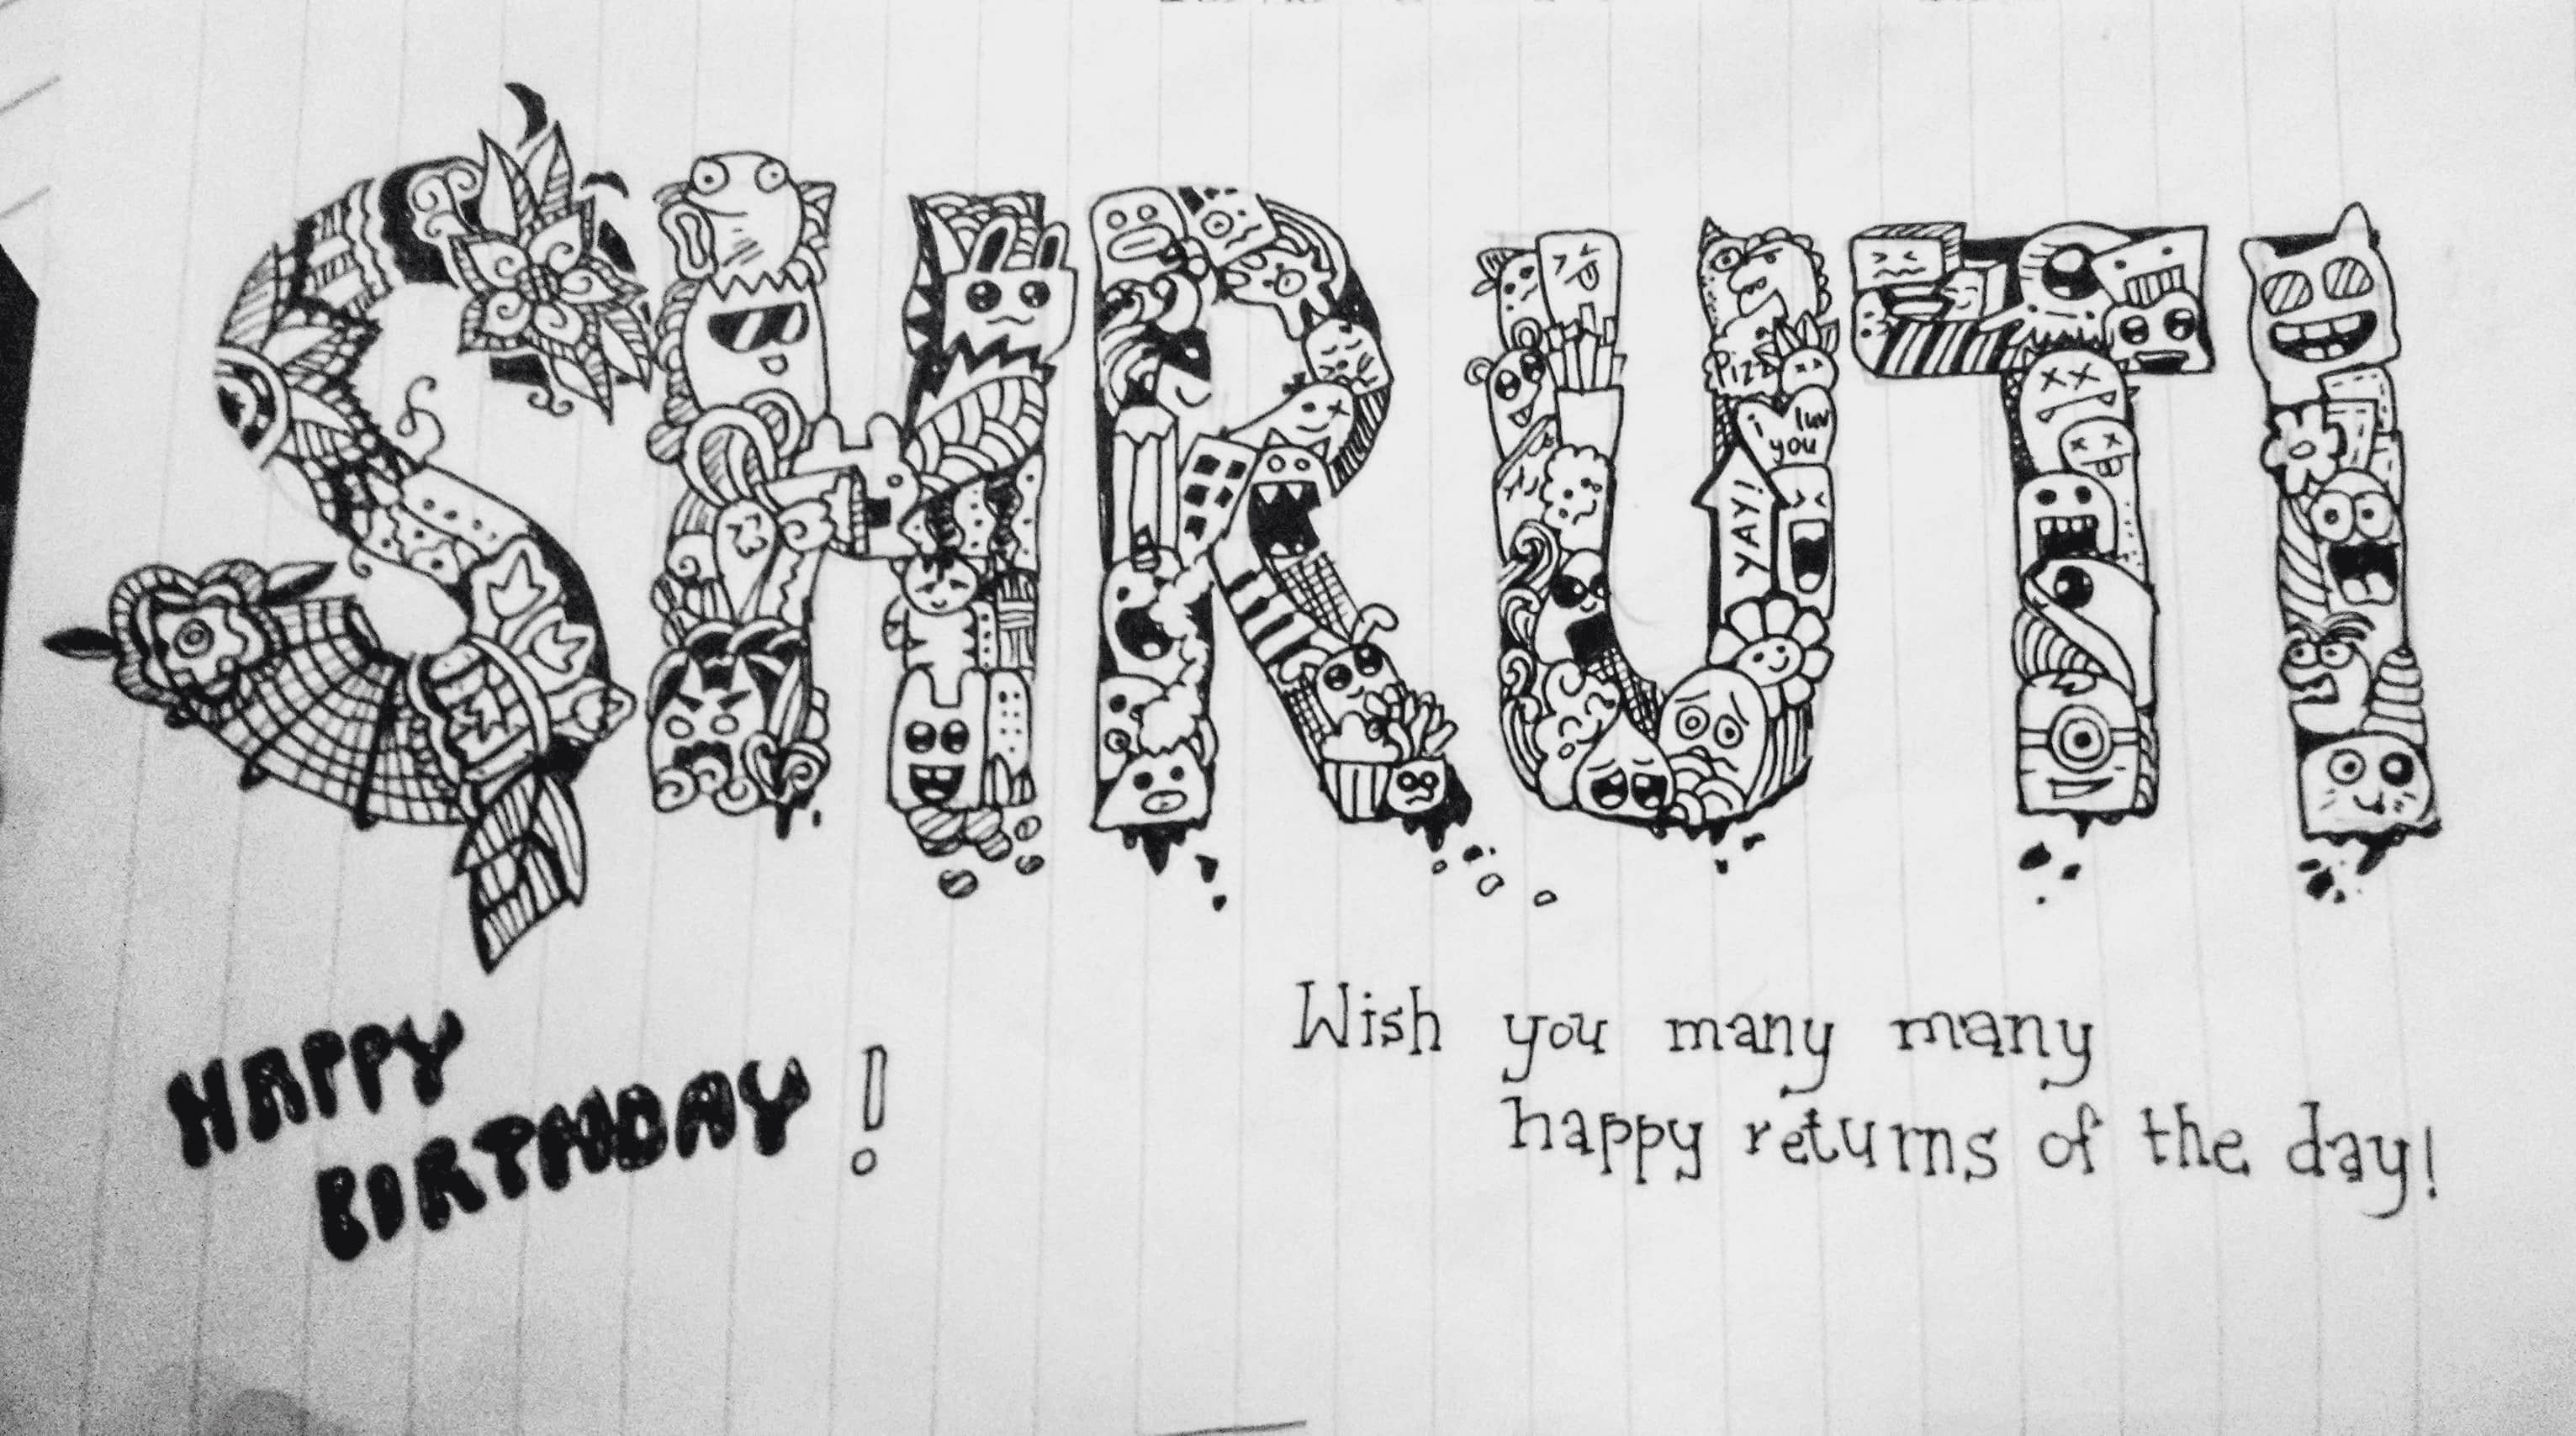 SHRUTI
Pizz
i luv
you
YAY!
HAPPY
BIRTHDAY!
Wish you many many
happy returns of the day!